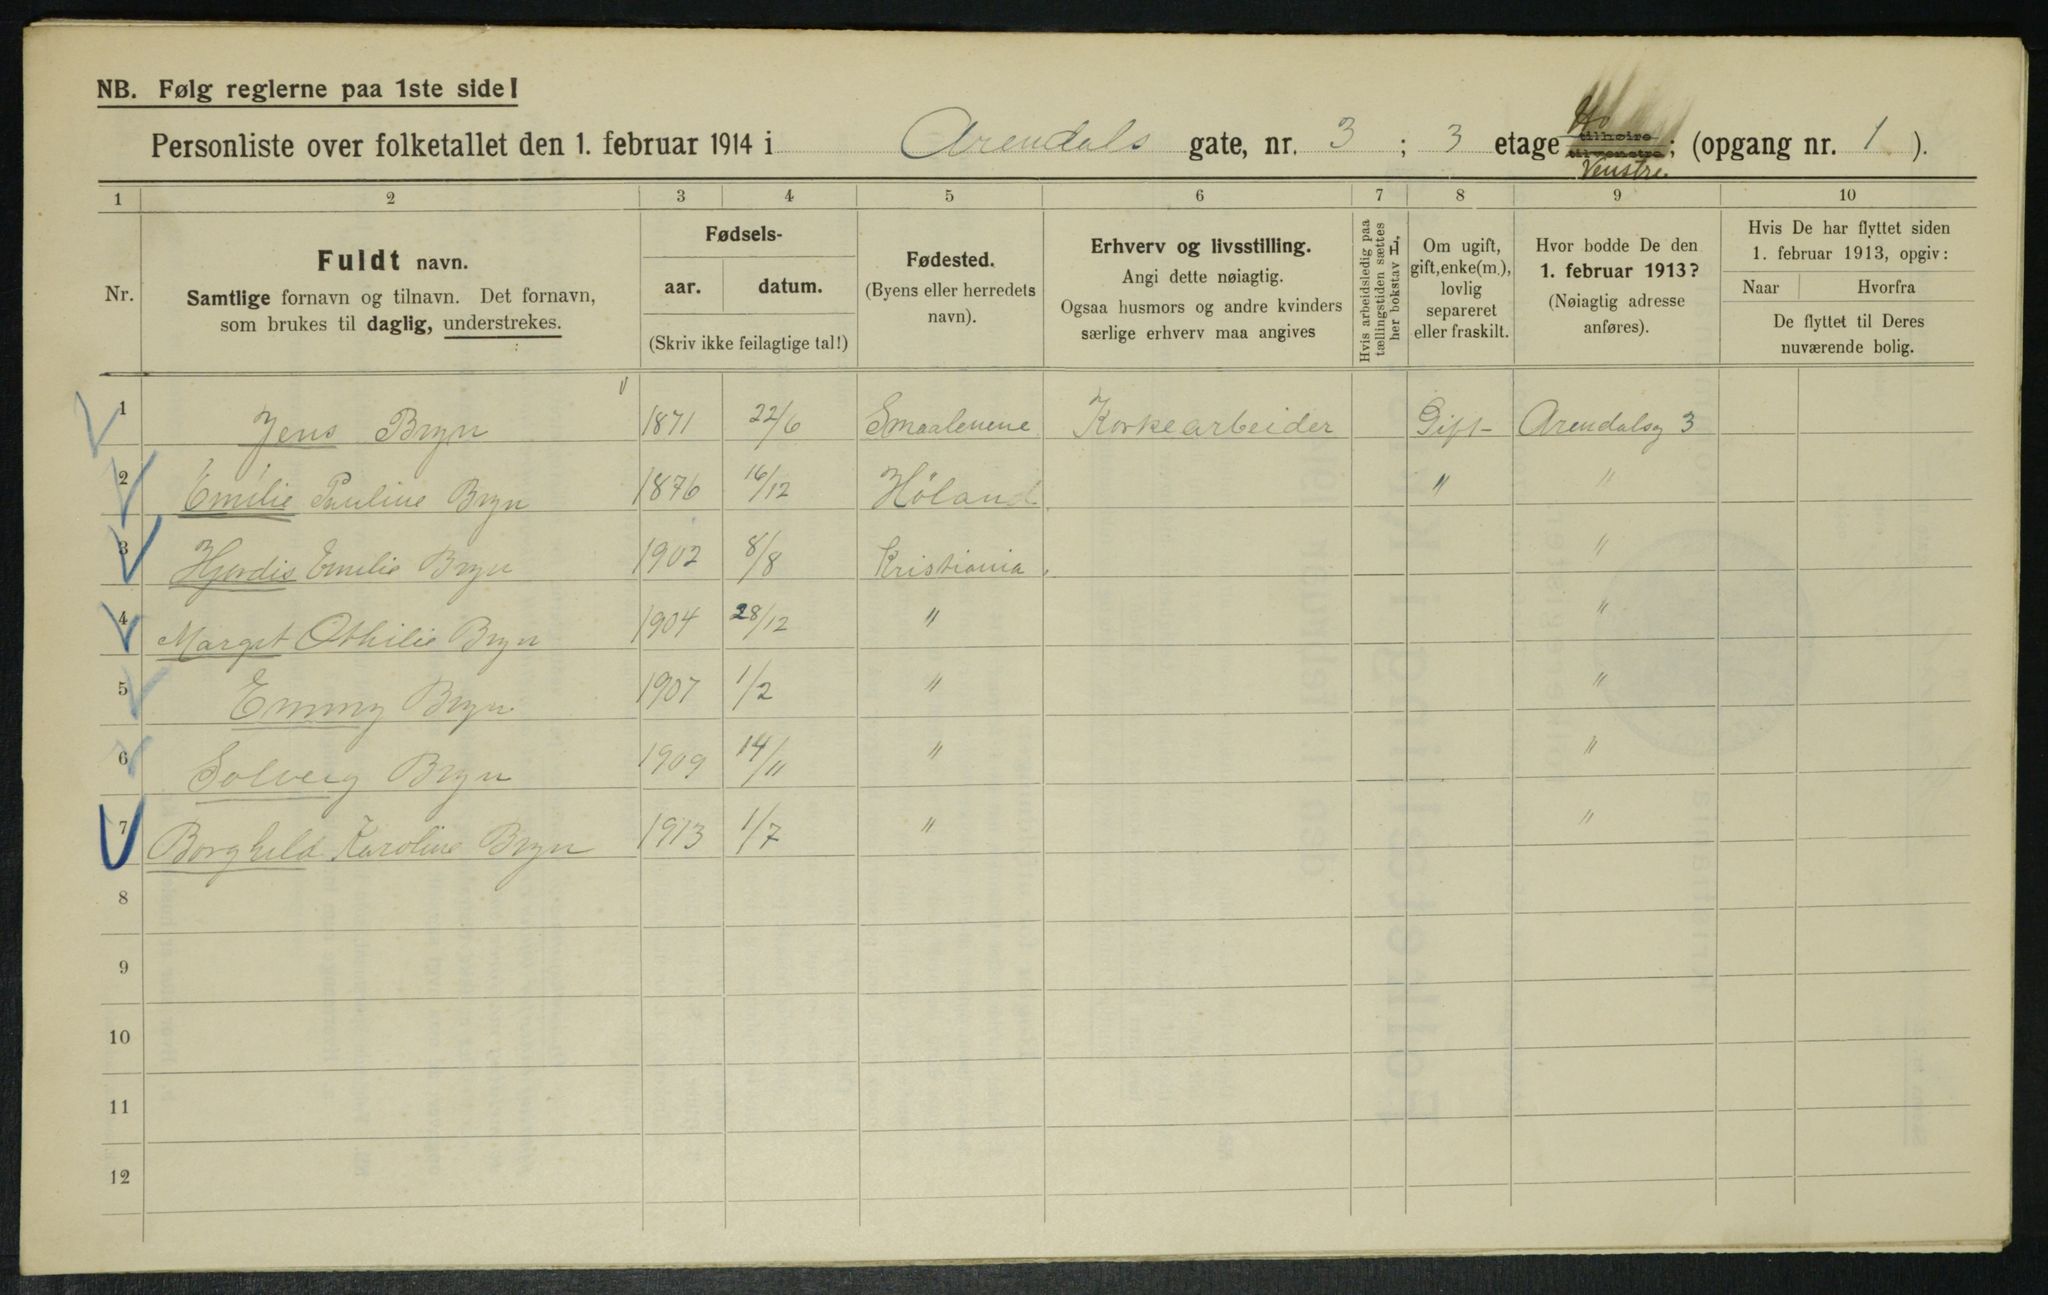 NB. Følg reglerne paa 1ste side!
Personliste over folketallet den 1. februar 1914 i Arendals gate, nr. 3 ; 3 etage tilhøire tilvenstre Venstre ; (opgang nr. 1 ).
1 2 3 4 5 6 7 8 9 10
Nr.
Fuldt navn.
Samtlige fornavn og tilnavn. Det fornavn,
som brukes til daglig, understrekes.
Fødsels-
aar. datum.
(Skriv ikke feilagtige tal!)
Fødested.
(Byens eller herredets
navn).
Erhverv og livsstilling.
Angi dette nøiagtig.
Ogsaa husmors og andre kvinders
særlige erhverv maa angives
Hvis arbeidsledig paa
tællingstiden sættes
her bokstav L,
Om ugift,
gift, enke(m.),
lovlig
separeret
eller fraskilt.
Hvor bodde De den
1. februar 1913?
(Nøiagtig adresse
anføres).
Hvis De har flyttet siden
1. februar 1913, opgiv:
Naar Hvorfra
De flyttet til Deres
nuværende bolig.
1 Jens Bryn 1871 22/6 Smaalenene Korkearbeider Gift Arendalsg 3
2 Emilie Pauline Bryn 1876 16/12 Høland " "
3 Hjørdis Emilie Bryn 1902 8/8 Kristiania "
4 Margit Othilie Bryn 1904 28/12 " "
5 Emmy Bryn 1907 1/2 " "
6 Solveig Bryn 1909 14/11 " "
7 Borghild Karoline Bryn 1913 1/7 " "
8
9
10
11
12